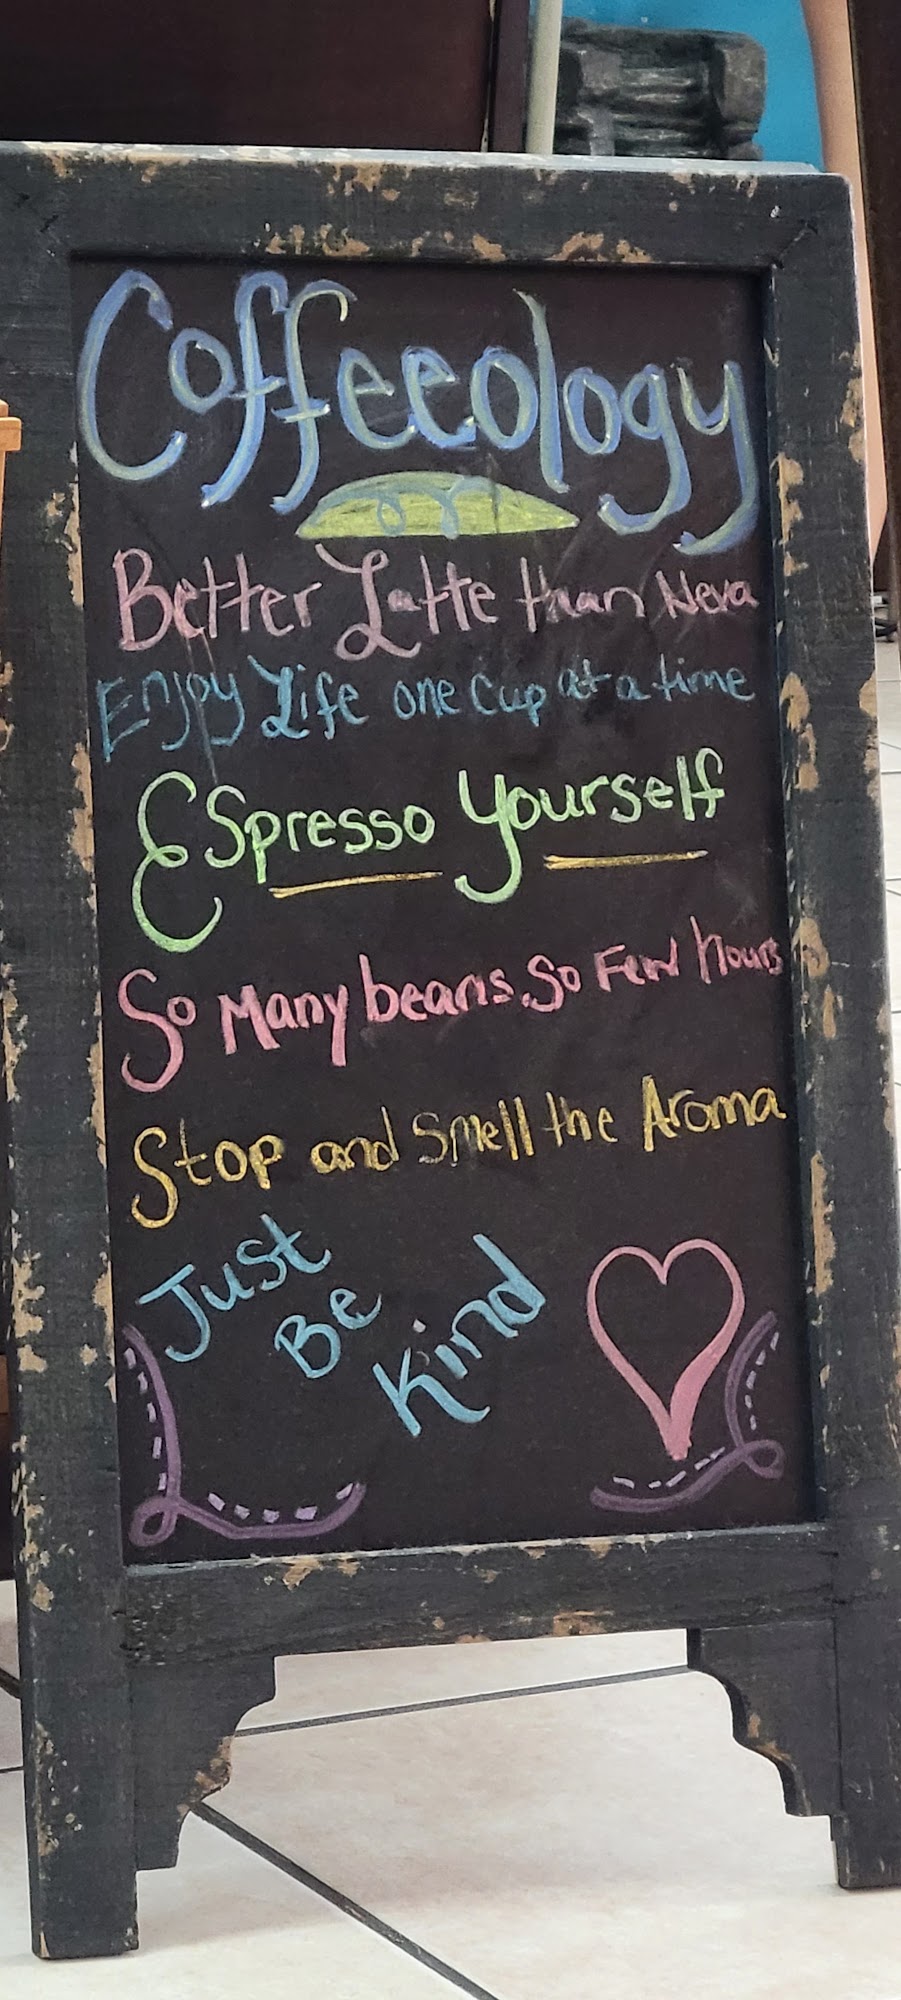 Coffeeology
Better Latte than Neva
Enjoy Life one Cup at a time
Espresso Yourself
So Many beans So Few hours
Stop and Smell the Aroma
Just
Be
Kind